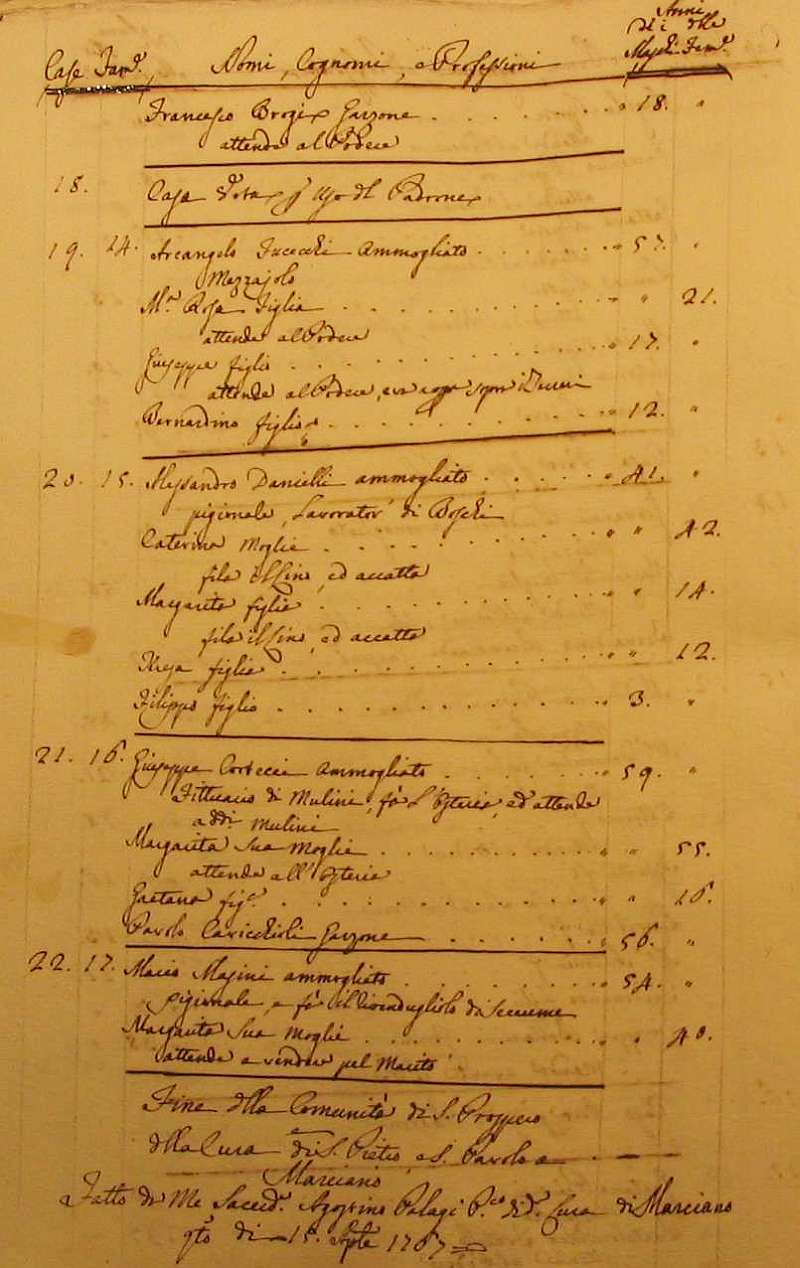 Anni
de i delle
Case Fam.e Nomi, Cognomi, e Professioni Maschi. Fem.e
Francesco Brogi Garzone 18. "
attende al Podere
18. Casa Vota p. Uso del Padrone
19. 14. Arcangelo Fucecchi Ammogliato 57. "
Mezzajolo
M.a Rosa Figlia " 21.
attende al Podere
Giuseppe figlio 17. "
attende al Podere
Bernardino figlio 12. "
20. 15. Alessandro Danielli ammogliato 41. "
pigionale, Lavorator' di Boschi
Caterina Moglie " 42.
fila il Lino, ed accatta
Margarita figlia " 14.
fila il Lino, ed accatta
figlia " 12.
Filippo figlio 3. "
21. 16. Giuseppe Cortecci Ammogliato 59. "
Fittuario di Mulini, fà l'Osteria, ed attende
a dd.i Mulini
Margarita Sua Moglie " 55.
attende all'Osteria
Gaetana fig.a " 16.
Pavolo Caricchioli Garzone 56. "
22. 17. Masini ammogliato 54. "
pigionale, e fà il
Margarita Sua Moglie " 40.
attende a vender pel Marito
Fine della Comunità di S. Prospero
della Cura di S. Pietro, e S. Pavolo a
Marciano
Fatto da Me Sacerd.e Agostino Palagi P.co di d.a Cura di Marciano
q.to dì 15. Sptte 1767